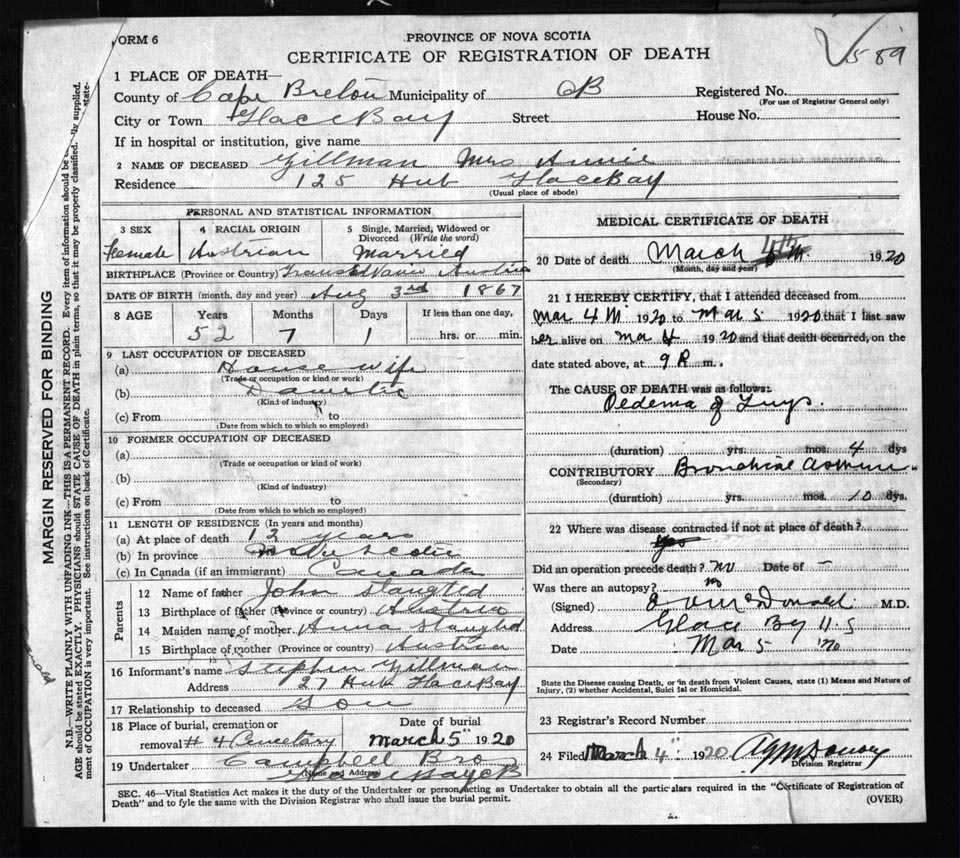 FORM 6
PROVINCE OF NOVA SCOTIA
CERTIFICATE OF REGISTRATION OF DEATH
589
1 PLACE OF DEATH—
County of Cape Breton Municipality of CB Registered No.
(For use of Registrar General only)
City or Town Glace Bay Street House No.
If in hospital or institution, give name
2 NAME OF DECEASED Gillman Mrs Annie
Residence 125 Hub Glace Bay
(Usual place of abode)
PERSONAL AND STATISTICAL INFORMATION
3 SEX 4 RACIAL ORIGIN 5 Single, Married, Widowed or Divorced (Write the word)
Female Austrian Married
BIRTHPLACE (Province or Country) Austria
DATE OF BIRTH (month, day and year) Aug 3rd 1867
8 AGE Years Months Days If less than one day,
52 7 1 hrs. or min.
9 LAST OCCUPATION OF DECEASED
(a) House wife
(Trade or occupation or kind or work)
(b)
(Kind of industry)
(c) From to
(Date from which to which so employed)
10 FORMER OCCUPATION OF DECEASED
(a)
(Trade or occupation or kind of work)
(b)
(Kind of industry)
(c) From to
(Date from which to which so employed)
11 LENGTH OF RESIDENCE (In years and months)
(a) At place of death 12 years
(b) In province
(c) In Canada (if an immigrant) Canada
Parents
12 Name of father John
13 Birthplace of father (Province or country) Austria
14 Maiden name of mother Anna
15 Birthplace of mother (Province or country) Austria
16 Informant's name Stephen Gillman
Address 27 Hub Glace Bay
17 Relationship to deceased Son
18 Place of burial, cremation or Date of burial
removal # 4 Cemetary March 5" 1920
19 Undertaker Campbell Bro
(Name and Address) Glace Bay CB
MEDICAL CERTIFICATE OF DEATH
20 Date of death March 4th 1920
(Month, day and year)
21 I HEREBY CERTIFY, that I attended deceased from
Mar 4 1920 to Mar 5 1920 that I last saw
her alive on Ma 4 1920 and that death occurred, on the
date stated above, at 9 P m.
The CAUSE OF DEATH was as follows:
Oedema of Lungs.
(duration) yrs. mos. 4 dys
CONTRIBUTORY Bronchial
(Secondary)
(duration) yrs. mos. 10 dys.
22 Where was disease contracted if not at place of death?
Did an operation precede death? no Date of –
Was there an autopsy? no
(Signed) McDonald M.D.
Address Glace Bay N.S
Date Mar 5 1920
State the Disease causing Death, or in death from Violent Causes, state (1) Means and Nature of
Injury, (2) whether Accidental, Suicidal or Homicidal.
23 Registrar's Record Number
24 Filed March 4" 1920
Division Registrar
SEC. 46—Vital Statistics Act makes it the duty of the Undertaker or person acting as Undertaker to obtain all the particulars required in the "Certificate of Registration of
Death" and to fyle the same with the Division Registrar who shall issue the burial permit. (OVER)
MARGIN RESERVED FOR BINDING
N.B.—WRITE PLAINLY WITH UNFADING INK—THIS IS A PERMANENT RECORD. Every item of information should be supplied.
AGE should be stated EXACTLY. PHYSICIANS should STATE CAUSE OF DEATH in plain terms, so that it may be properly classified. state-
ment of OCCUPATION is very important. See instructions on back of Certificate.